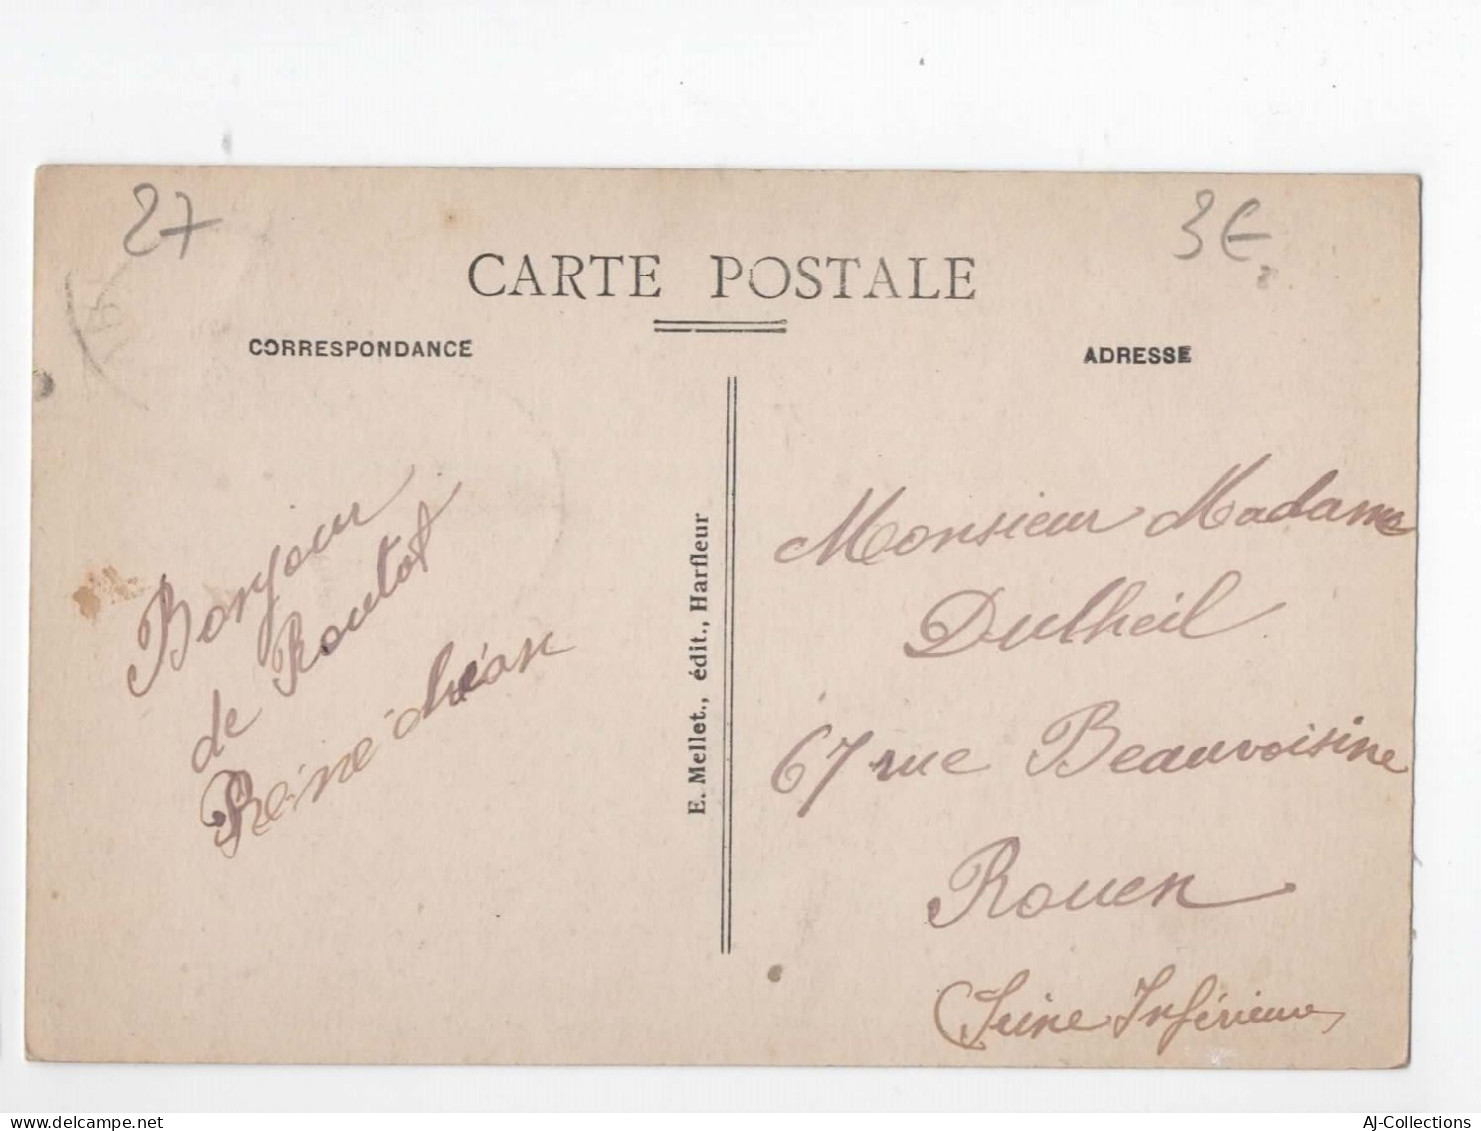 27
3€
CARTE POSTALE
CORRESPONDANCE
ADRESSE
Bonjour
de Routot
Reine
E. Mellet., édit., Harfleur
Monsieur Madame
Dulheil
67 rue Beauvoisine
Rouen
(Seine Inférieure)
AJ-Collections